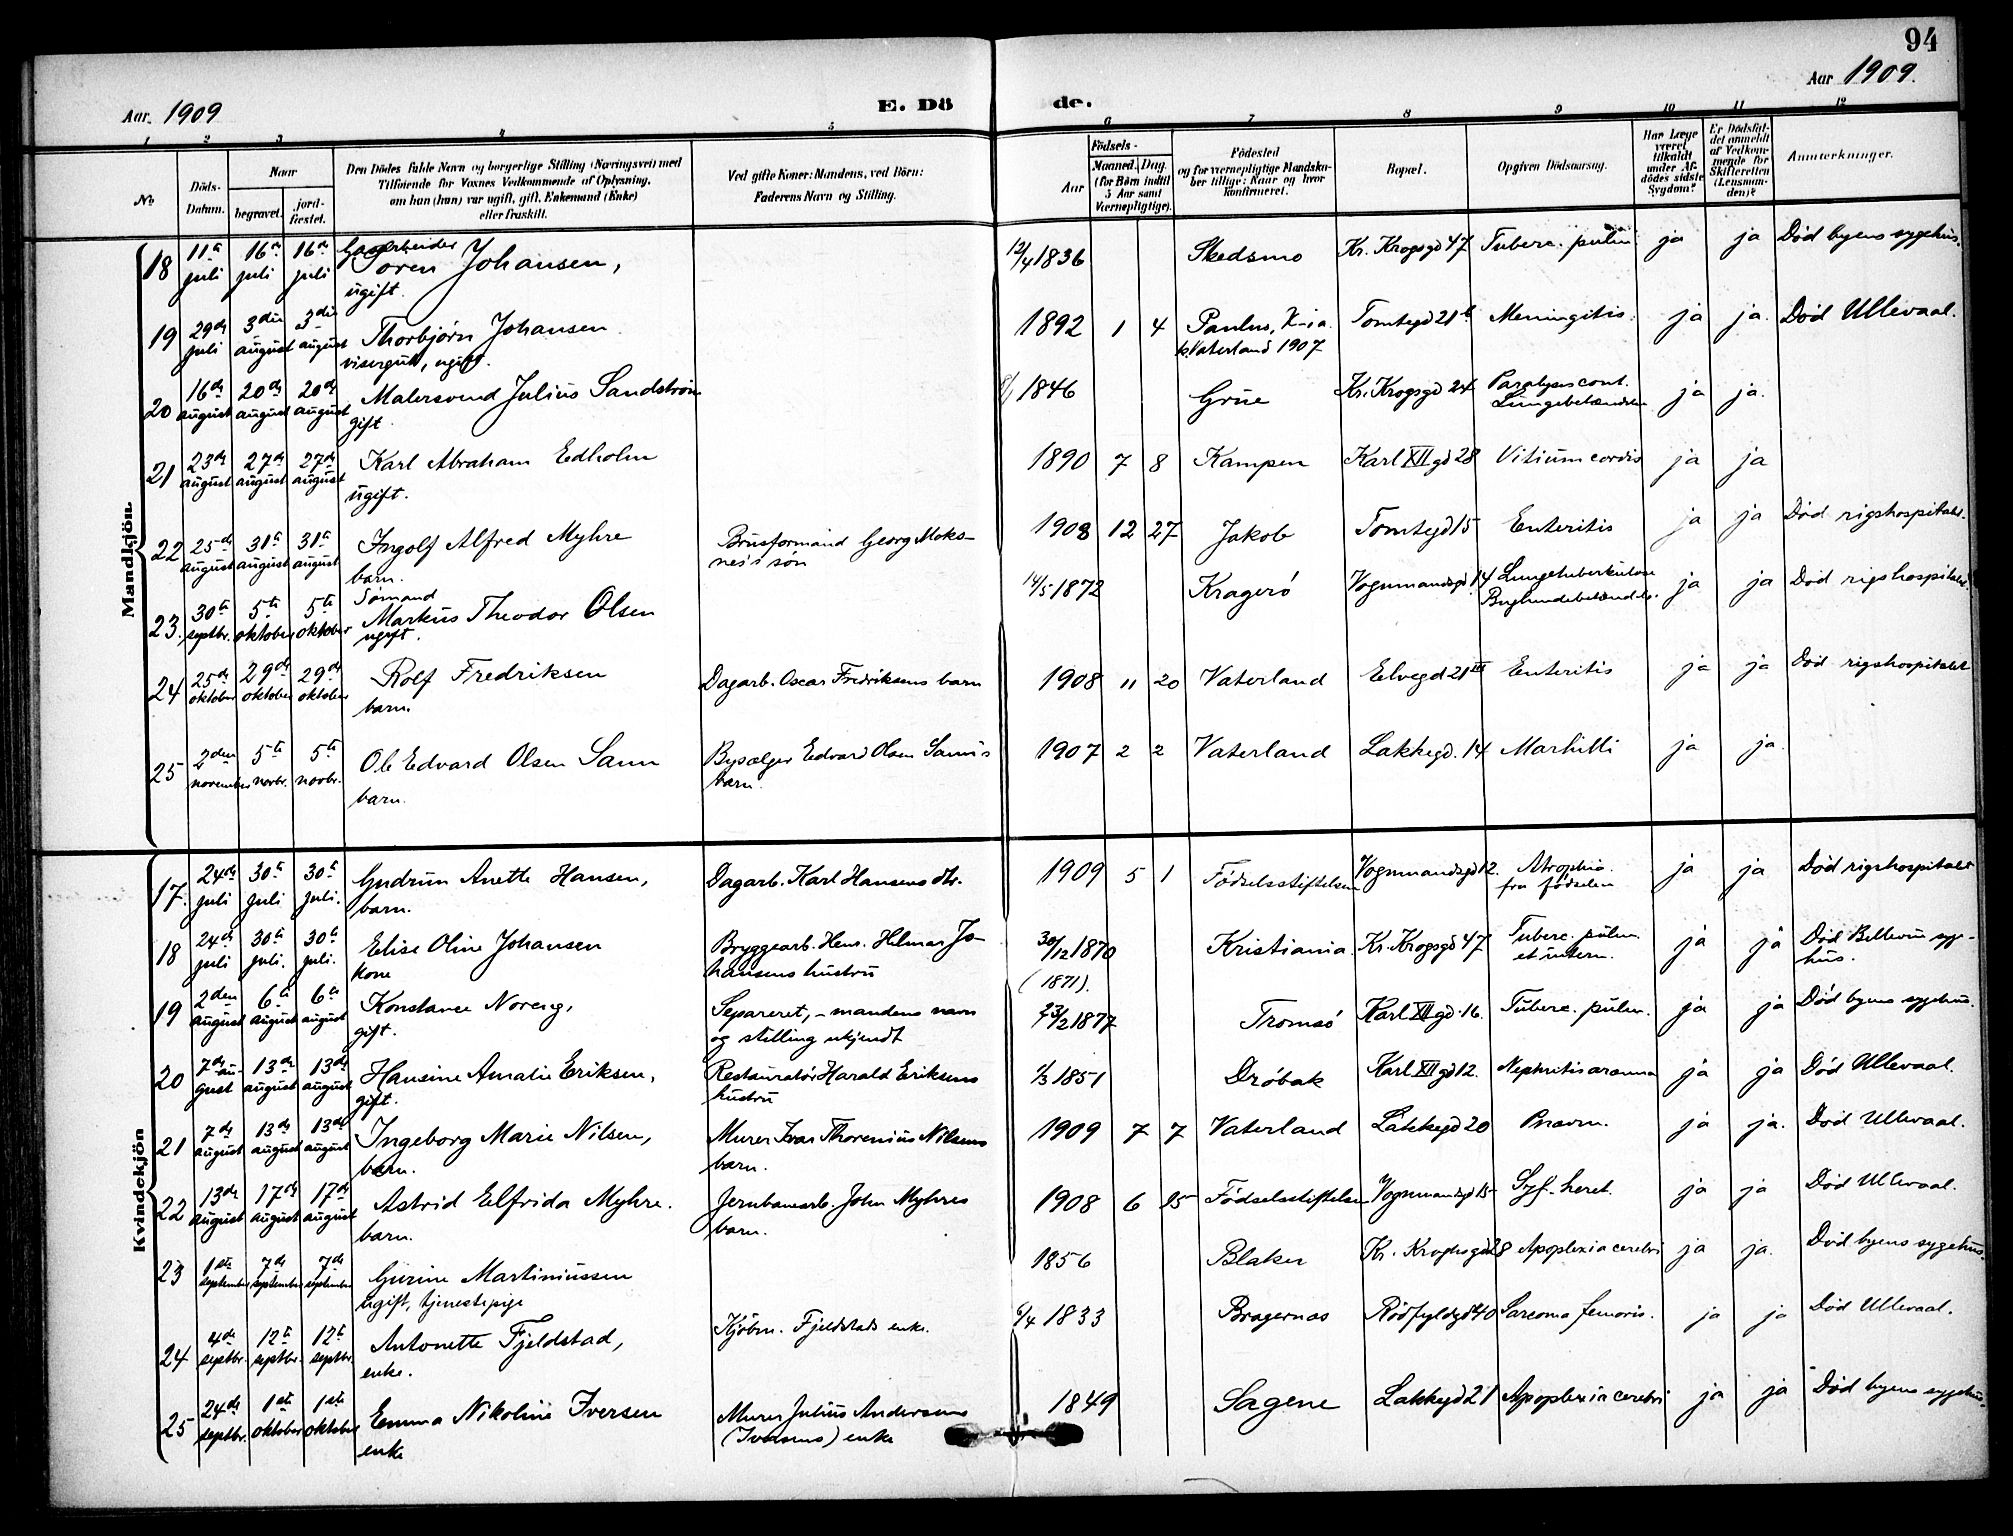 94
Aar 1909
E. Dö
de.
Aar 1909.
1 2 3 4 5 6 7 8 9 10 11 12
№
Döds-
Datum.
Naar
begravet.
jord-
fæstet.
Den Dödes fulde Navn og borgerlige Stilling (Næringsvei) med
Tilföiende for Voxnes Vedkommende af Oplysning,
om han (hun) var ugift, gift, Enkemand (Enke)
eller fraskilt.
Ved gifte Koner: Mandens, ved Börn:
Faderens Navn og Stilling.
Födsels-
Aar
Maaned. Dag.
(for Børn indtil
5 Aar samt
Værnepligtige).
Födested
og for værnepligtige Mandska-
ber tillige: Naar og hvor
konfirmeret.
Bopæl.
Opgiven Dödsaarsag.
Har Læge
været
tilkaldt
under Af-
dödes sidste
Sygdom?
Er Dödsfal-
det anmeldt
af Vedkom-
mende for
Skifteretten
(Lensman-
den)?
Anmærkninger.
Mandkjön.
18 11te juli 16de juli 16de juli Soren Johansen, ugift. 12/4 1836 Skedsmo Kr. Krogsgd 47 Tuberc. pulm ja ja Død byens sygehus.
19 29de juli 3die august 3die august Thorbjørn Johansen visergut, ugift. 1892 1 4 Paulus, K-ia. k. Vaterland 1907 Tomtegd 21b Meningitis. ja ja. Død Ullevaal.
20 16de august 20de august 20de august Malersvend Julius Sandström gift. 1846 Grue Kr. Krogsgd 24 Paralysis cont. Lungebetændelse ja ja.
21 23de august 27de august 27de august Karl Abraham Edholm ugift. 1890 7 8 Kampen Karl XII gd 28 Vitium cordis ja ja
22 25de august 31te august 31te august Ingolf Alfred Myhre barn. Brusformand Georg Moks- nes's søn 1908 12 27 Jakob Tomtegd 15 Enteritis ja ja Död rigshospitalet.
23. 30te septbr. 5te oktober 5te oktober Sömand Markus Theodor Olsen ugift. 14/5 1872 Kragerö Vognmandsgd. 14 Lungetuberkulose ja ja Död rigshospitalet.
24 25de oktober 29de oktober 29de oktober Rolf Fredriksen barn. Dagarb. Oscar Fredriksens barn 1908 11 20 Vaterland Elvegd 21 III Enteritis ja ja Död rigshospitalet
25 2den november 5te novbr. 5te novbr. Ole Edvard Olsen Sann barn. Bysælger Edvard Olsen Sann's barn. 1907 2 2 Vaterland Lakkegd. 14 Morbilli ja ja.
Kvindekjön
17. 24de juli 30te juli 30te juli. Gudrun Anette Hansen, barn. Dagarb. Karl Hansens dtr. 1909 5 1 Födselsstiftelsen Vognmandsgd 12. Atrophia. fra fødselen ja ja Död rigshospitalet
18 24de juli 30te juli. 30te juli. Elise Oline Johansen kone Bryggearb. Hans Hilmar Jo- hansens hustru 30/12 1870 (1871). Kristiania. Kr. Krogsgd 47 Tuberc. pulm. et intern. ja ja Död Bellevue syge- hus.
19 2den august 6te august 6te august Konstance Noreng, gift. Separeret, – mandens navn og stilling ukjendt 23/2 1877 Tromsö Karl XII gd. 16. Tuberc. pulm. ja ja Död byens sygehus.
20 7de au- gust 13de august 13de august Hansine Amalie Eriksen, gift. Restauratör Harald Eriksens hustru 1/3 1851 Dröbak Karl XII gd 12. Nephritis ja ja Död Ullevaal.
21 7de august 13de august 13de august Ingeborg Marie Nilsen, barn. Murer Ivar Thorenius Nilsens barn. 1909 7 7 Vaterland Lakkegd 20 Pneum. ja ja. Död Ullevaal.
22 13de august 17de august 17de august Astrid Elfrida Myhre. barn. Jernbanearb. John Myhres barn. 1908 6 25 Födselsstiftelsen Vognmandsgd 15 Syf. heret. ja ja Död Ullevaal.
23 1ste september 7de september 7de september Gurine Martiniussen ugift, tjenestepige 1856 Blaker Kr. Kroghsgd 28 Apoplexia cerebri ja ja. Död byens sygehus.
24 4de septbr. 12te septbr. 12te septbr. Antonette Fjeldstad, enke. Kjøbm. Fjeldstads enke. 6/4 1833 Bragernas Rödfyldgd 40 Sarcoma femoris. ja ja Död Ullevaal.
25 24de septbr. 1ste oktober 1ste oktober Emma Nikoline Iversen enke Murer Julius Andersens (Iversens) enke 1849 Sagene Lakkegd 21 Apoplexia cerebri ja ja Död byens sygehus.